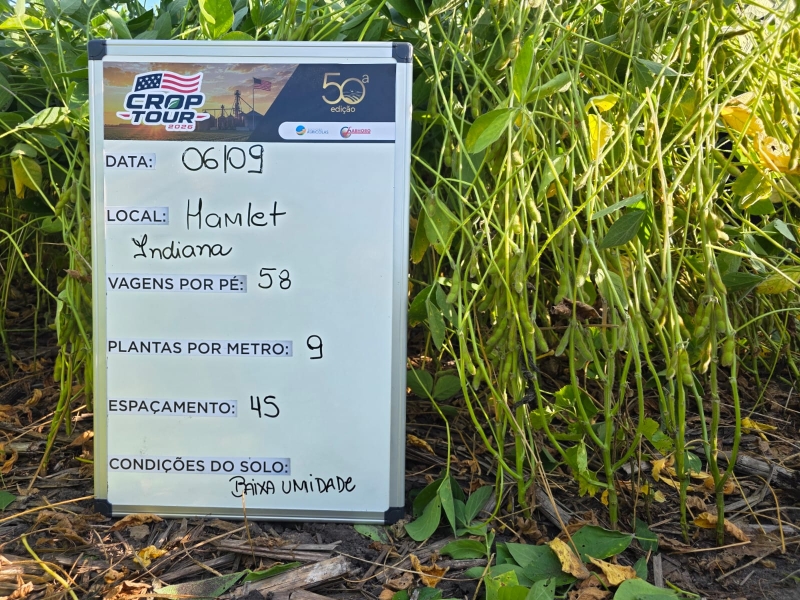 CROP
TOUR
2026
50ª
edição
DATA: 06/09
LOCAL: Hamlet
Indiana
VAGENS POR PÉ: 58
PLANTAS POR METRO: 9
ESPAÇAMENTO: 45
CONDIÇÕES DO SOLO:
BAIXA UMIDADE